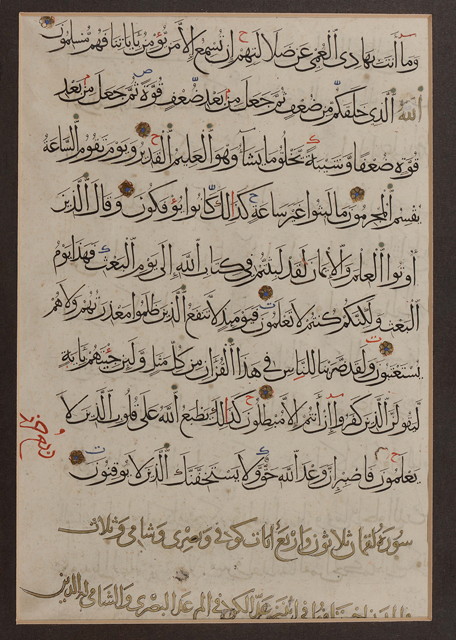 وما أنت بهادي العمي عن ضلالتهم إن تسمع إلا من يؤمن بآياتنا فهم مسلمون
الله الذي خلقكم من ضعف ثم جعل من بعد ضعف قوة ثم جعل من بعد
قوة ضعفا وشيبة يخلق ما يشاء وهو العليم القدير ويوم تقوم الساعة
يقسم المجرمون ما لبثوا غير ساعة كذلك كانوا يؤفكون وقال الذين
أوتوا العلم والإيمان لقد لبثتم في كتاب الله إلى يوم البعث فهذا يوم
البعث ولكنكم كنتم لا تعلمون فيومئذ لا تنفع الذين ظلموا معذرتهم ولا هم
يستعتبون ولقد ضربنا للناس في هذا القرآن من كل مثل ولئن جئتهم بآية
ليقولن الذين كفروا إن أنتم إلا مبطلون كذلك يطبع الله على قلوب الذين لا
يعلمون فاصبر إن وعد الله حق ولا يستخفنك الذين لا يوقنون
سورة لقمان ثلاثون وأربع آيات كوفي وبصري وشامي وثلاث
الكوفي الم عد البصري والشامي له الدين